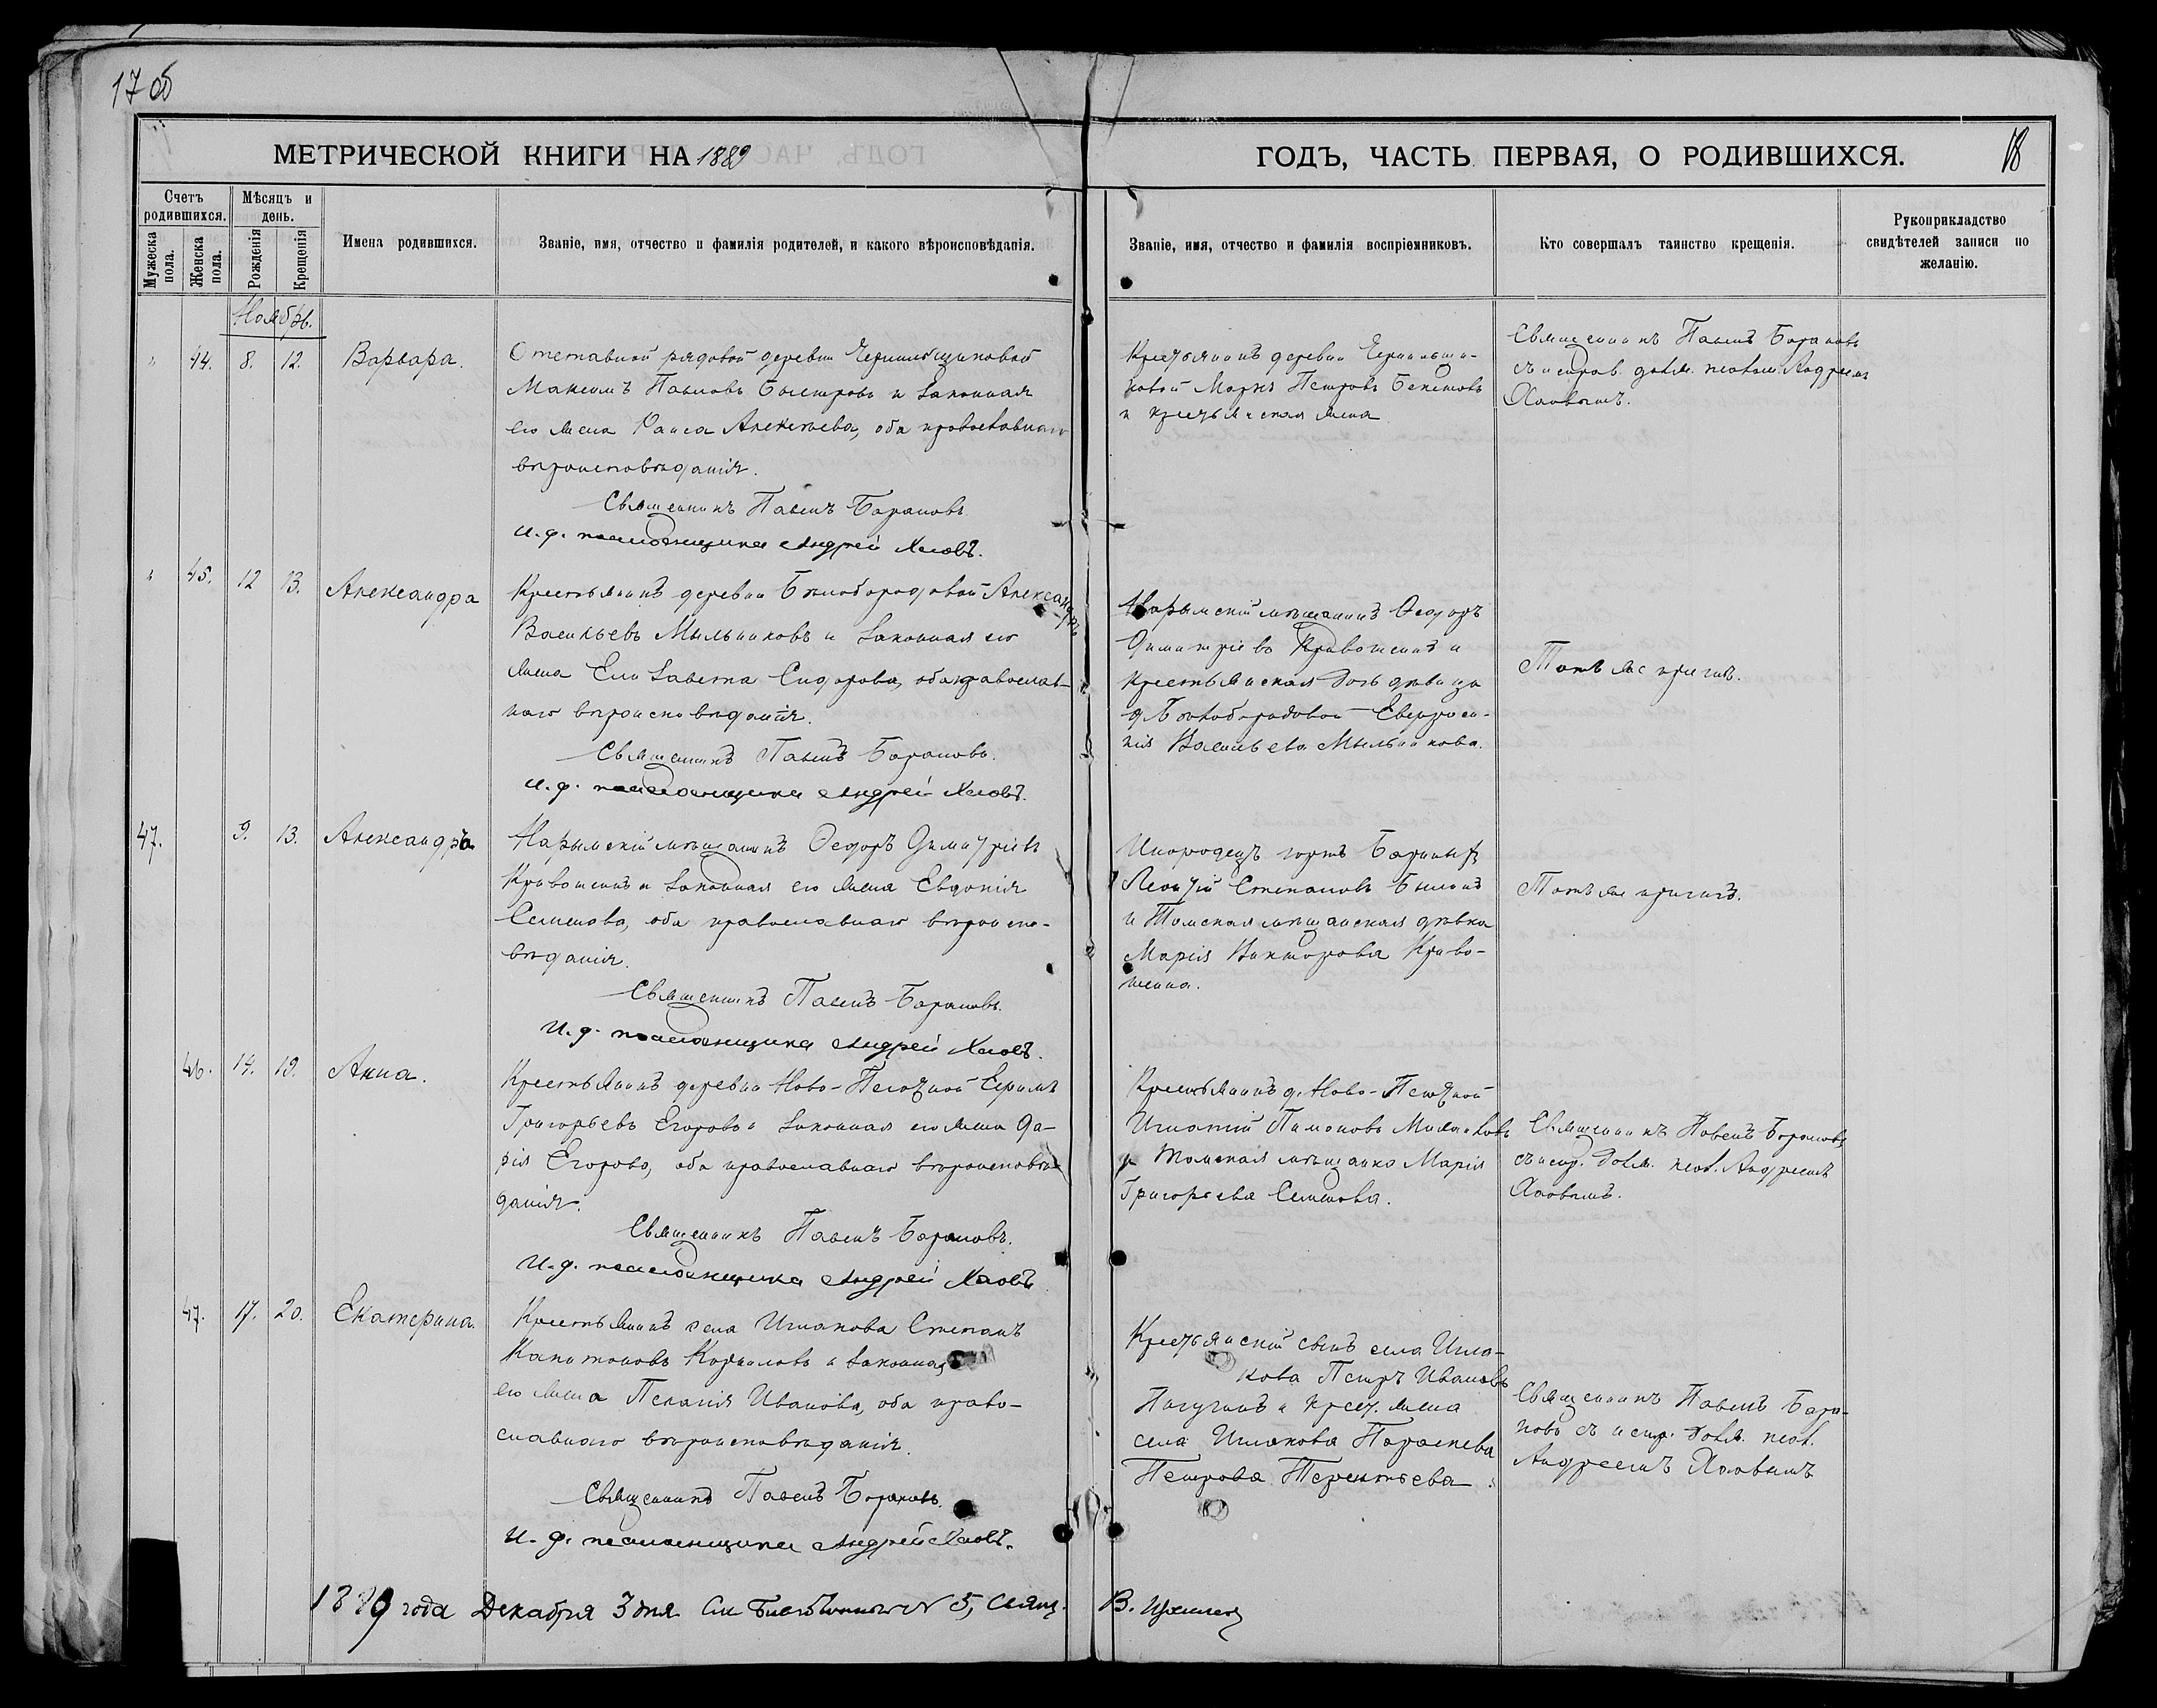 17 об
МЕТРИЧЕСКОЙ КНИГИ НА 1889
ГОДЪ, ЧАСТЬ ПЕРВАЯ, О РОДИВШИХСЯ.
18
Счетъ родившихся.
Мужеска пола.
Женска пола.
Мѣсяцъ и день.
Рожденія
Крещенія
Имена родившихся.
Званіе, имя, отчество и фамилія родителей, и какого вѣроисповѣданія.
Званіе, имя, отчество и фамилія воспріемниковъ.
Кто совершалъ таинство крещенія.
Рукоприкладство свидѣтелей записи по желанію.
Ноябрь.
" 44. 8. 12. Варвара.
Отставной рядовой деревни
Максимъ Павловъ Быстровъ и законная
его жена Раиса Алексѣева, оба православнаго
вѣроисповѣданія.
Священникъ Павелъ Барановъ
И. д. псаломщика Андрей Хловъ.
Крестьянинъ деревни
Маркъ Петровъ Бекетовъ
и крестьянская жена
Священникъ Павелъ Барановъ
съ исправ. долж. псалом. Андреемъ
Хловымъ.
" 45. 12 13. Александра
Крестьянинъ деревни Бѣлобородовой Александръ
Васильевъ Мыльниковъ и законная его
жена Елизавета Сидорова, оба православ-
наго вѣроисповѣданія.
Священникъ Павелъ Барановъ.
И. д. псаломщика Андрей Хловъ.
Нарымскій мѣщанинъ Ѳедоръ
Димитріевъ Кривошеинъ и
крестьянская дочь дѣвица
д. Бѣлобородовой Евфроси-
нія Васильева Мыльникова.
Тотъ же причтъ.
47. 9. 13. Александръ
Нарымскій мѣщанинъ Ѳедоръ Димитріевъ
Кривошеинъ и законная его жена Евдокія
Семенова, оба православнаго вѣроиспо-
вѣданія.
Священникъ Павелъ Барановъ.
И. д. псаломщика Андрей Хловъ.
Инородецъ юртъ
Леонтій Степановъ
и Томская мѣщанская дѣвка
Марія Викторова Криво-
шеина.
Тотъ же причтъ.
46. 14. 19. Анна.
Крестьянинъ деревни Ново- Ефимъ
Григорьевъ Егоровъ и законная его жена Да-
рія Егорова, оба православнаго вѣроисповѣ-
данія.
Священникъ Павелъ Барановъ.
И. д. псаломщика Андрей Хловъ
Крестьянинъ д. Ново-
Игнатій
и Томская мѣщанка Марія
Григорьева Семенова.
Священникъ Павелъ Барановъ
съ испр. долж. псал. Андреемъ
Хловымъ.
47. 17. 20. Екатерина.
Крестьянинъ села Ишакова Степанъ
Капитоновъ Корниловъ и законная
его жена Пелагія Иванова, оба право-
славнаго вѣроисповѣданія.
Священникъ Павелъ Барановъ.
И. д. псаломщика Андрей Хловъ.
Крестьянскій сынъ села Иша-
кова Петръ Ивановъ
Пичугинъ и крест. жена
села Ишакова Параскева
Петрова Терентьева
Священникъ Павелъ Бара-
новъ съ испр. долж. псал.
Андреемъ Хловымъ
1889 года Декабря 3 дня. N 5, Свящ. В.